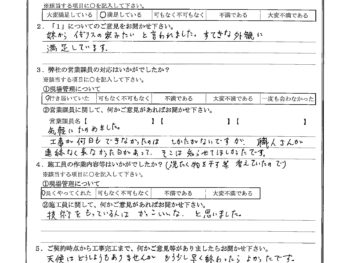 ※該当する項目に○を記入して下さい。
大変満足している ○満足している 可も不可も無い 不満である 大変不満である
2．「1」についてのご意見をお聞かせ下さい。
妹から イギリスの家みたい と言われました。すてきな外観に
満足しています。
3．弊社の営業課員の対応はいかがでしたか？
※該当する項目に○を記入して下さい。
①現場管理について
○行き届いていた 可も無く不可も無く 不満である 大変不満である 一度も会わなかった
②営業課員に関して、何かご意見があればお聞かせ下さい。
営業課員名【 】【 】【 】
気軽にたのめました。
工事が何日かできなかったのは しかたがないですが、職人さんが
連絡なく来なかった日があって、そこは気になってほしかったです。
4．施工員の作業内容等はいかがでしたか？(洗たく物を干す等
※該当する項目に○を記入して下さい。
①現場管理について
良くやってくれた 可も無く不可も無く 不満である 大変不満である
②施工員に関して、何かご意見があればお聞かせ下さい。
技術をもっている人は かっこいいな、と思いました。
5．ご契約時点から工事完了まで、何かご意見等がありましたらお聞かせ下さい。
天候はどうしようもありませんが もう少し早く終わったら よかったです。